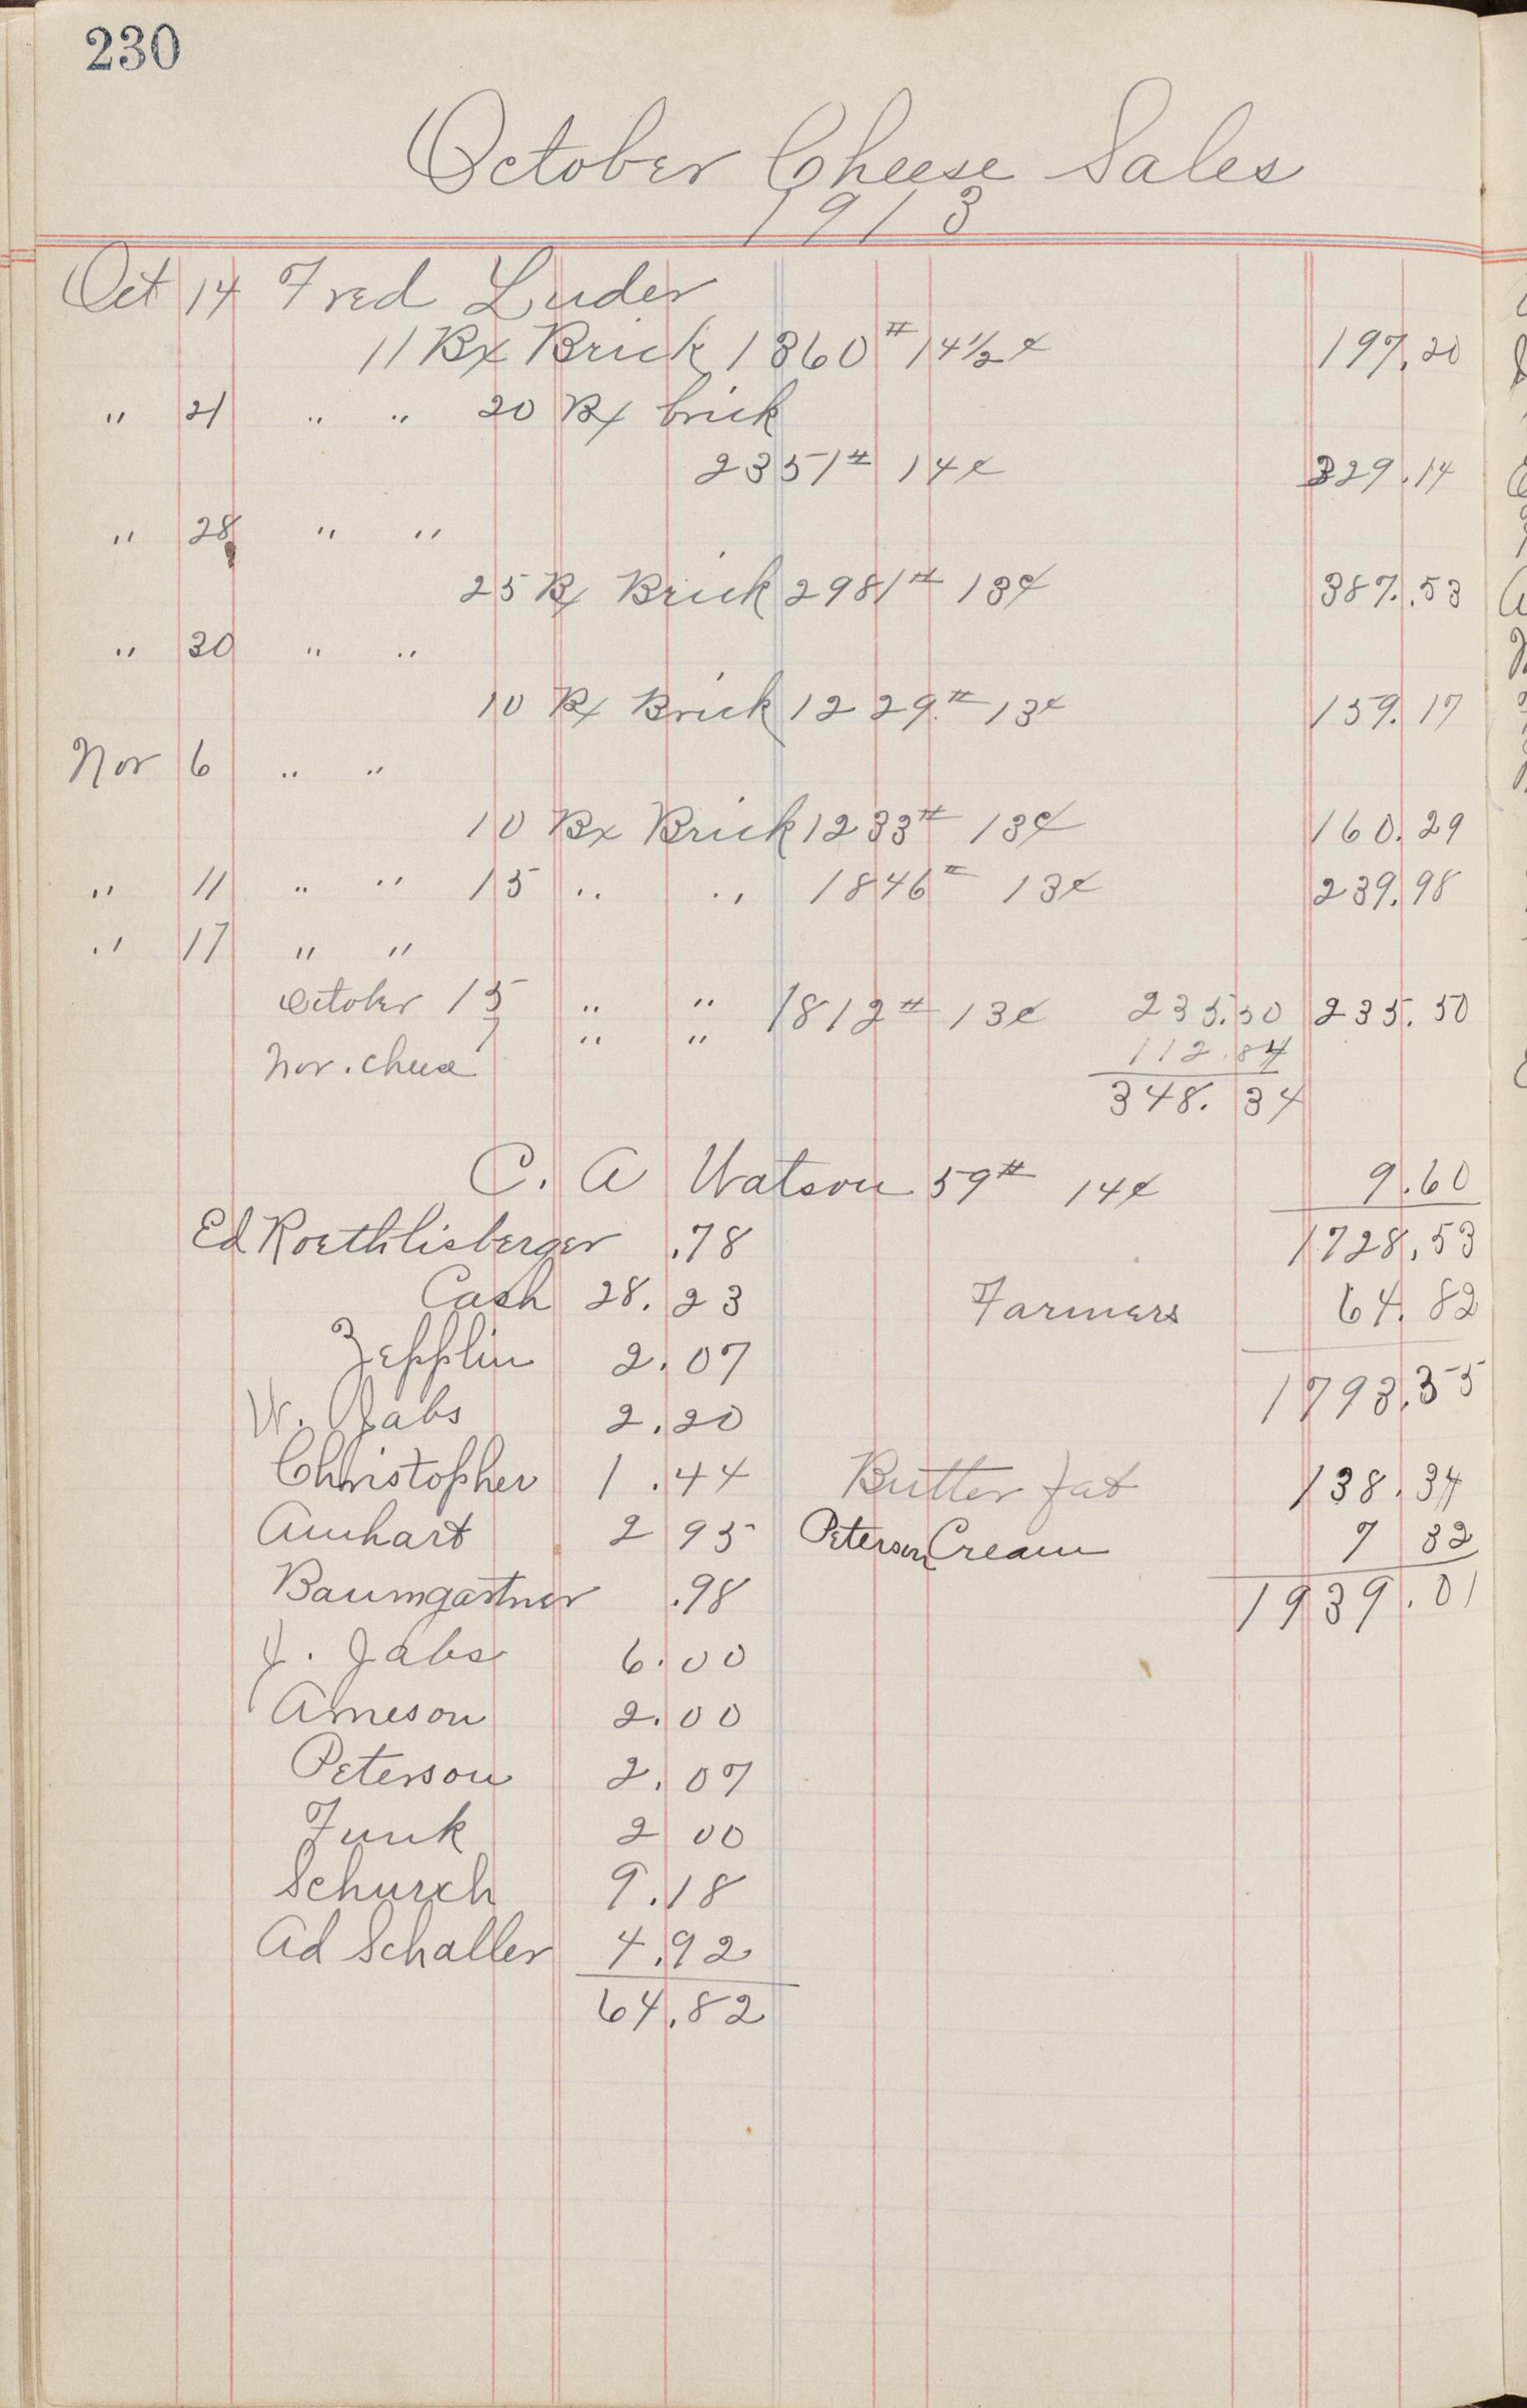 230
October Cheese Sales
1913
Oct 14 Fred Luder
11 Bx Brick 1360# 14½¢ 197.20
" 21 " " 20 Bx brick
2351# 14¢ 329.14
" 28 " "
25 Bx Brick 2981# 13¢ 387.53
" 30 " "
10 Bx Brick 1229# 13¢ 159.17
Nov 6 " "
10 Bx Brick 1233# 13¢ 160.29
" 11 " " 15 " " 1846# 13¢ 239.98
" 17 " "
October 15 " " 1812# 13¢ 235.50 235.50
Nov. cheese 7 " " 112.84
348.34
C. A Watson 59# 14¢ 9.60
Ed Roethlisberger .78 1728.53
Cash 28.23 Farmers 64.82
Zepplin 2.07
1793.35
W. Jabs 2.20
Christopher 1.44 Butter fat 138.34
Amhart 2 95 Peterson Cream 7 32
Baumgartner .98 1939.01
J. Jabs 6.00
Arneson 2.00
Peterson 2.07
Funk 2 00
Schurch 9.18
Ad Schaller 4.92
64.82